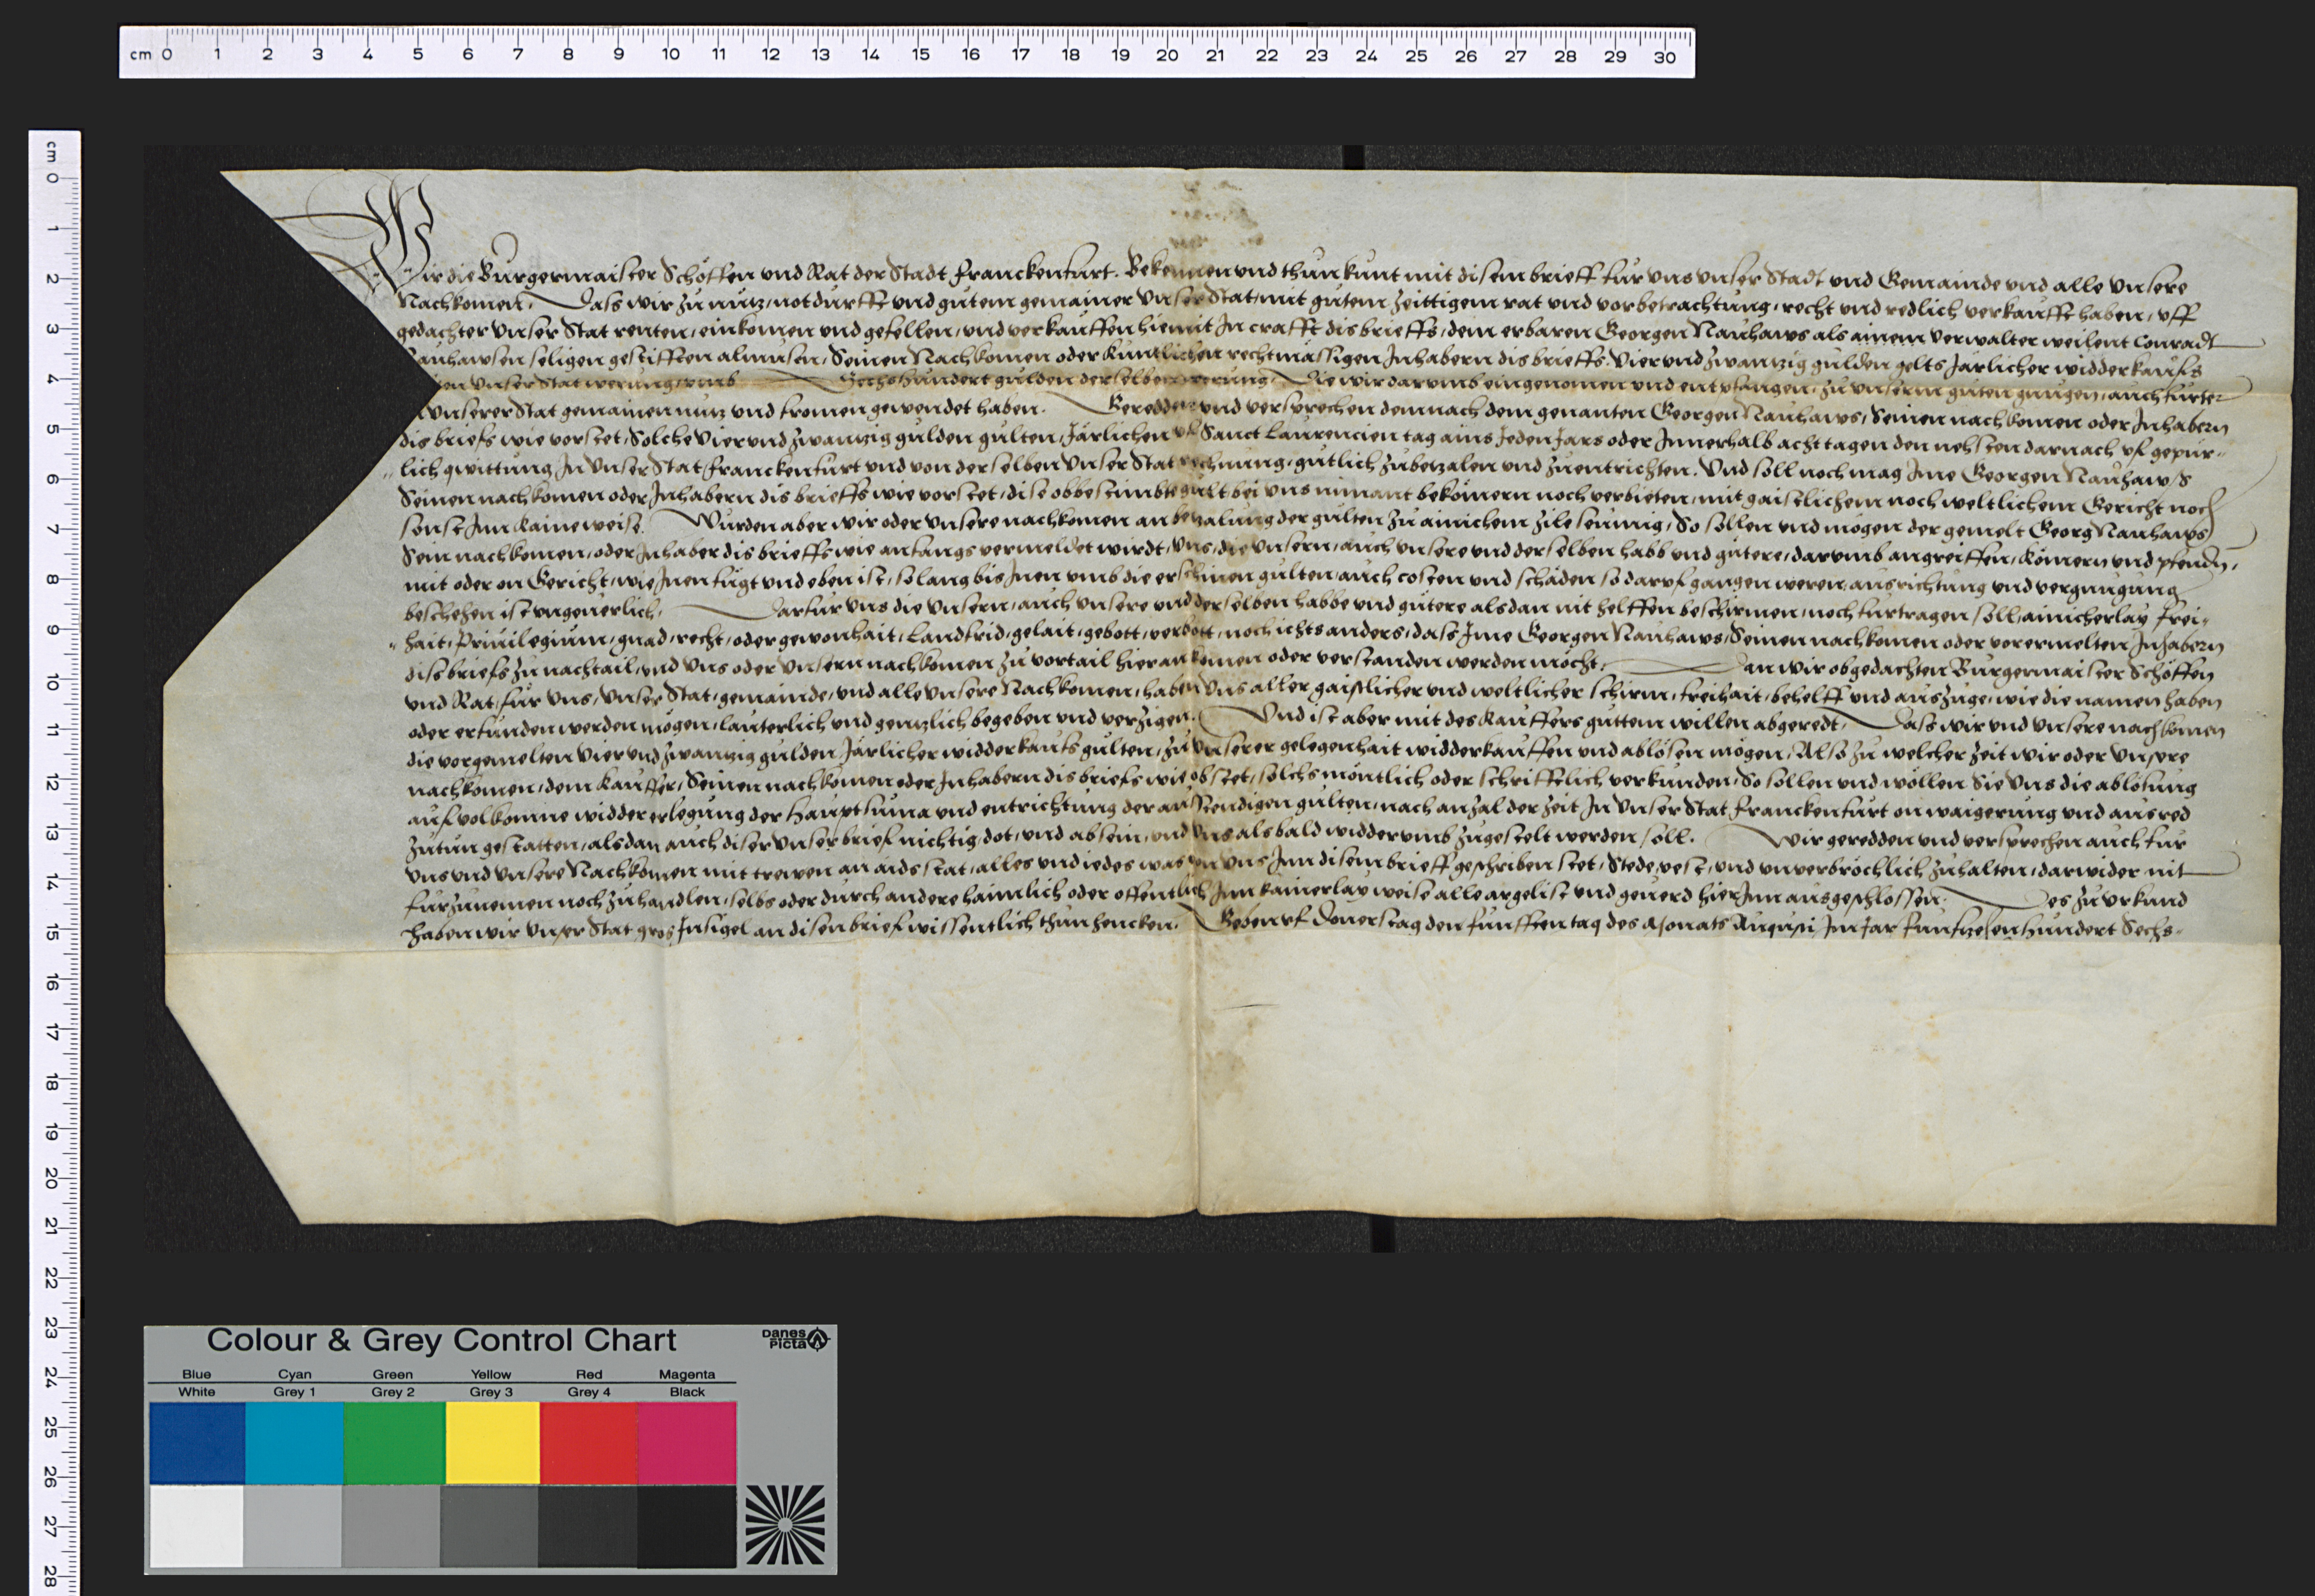 cm 0 1 2 3 4 5 6 7 8 9 10 11 12 13 14 15 16 17 18 19 20 21 22 23 24 25 26 27 28 29 30
cm 0 1 2 3 4 5 6 7 8 9 10 11 12 13 14 15 16 17 18 19 20 21 22 23 24 25 26 27 28
Wir die Burgermaister Schöffen vnd Rat der Stadt Franckenfurt. Bekennen vnd thun kunt mit disem brieff fur vns vnser Stadt vnd Gemainde vnd alle vnsere
Nachkomen, Dass wir zu nutz, notdurfft vnd gutem gemainer vnser Stat, mit gutem zeittigem rat vnd vorbetrachtung, recht vnd redlich verkaufft haben, vff
gedachter vnser Stat renten, einkomen vnd gefellen, vnd verkauffen hiemit In crafft dis brieffs, dem erbaren Georgen Nauhaws als ainem verwalter weilent Conradt
Nauhawsen seligen gestifften almusen, Seinen Nachkomen oder kuntlichen rechtmässigen Inhabern dis brieffs. Vier vnd zwantzig gulden gelts Järlicher widderkaufs
vnser Stat werung, vmb Sechshundert gulden derselben werung, Die wir darumb eingenomen vnd entpfangen, zu vnserm guten gnugen, auch furter
vnserer Stat gemainen nutz vnd fromen gewendet haben. Geredden vnd versprechen demnach dem genanten Georgen Nauhaws, Seinen nachkomen oder Inhabern
dis briefs wie vorstet, Solche Vier vnd zwantzig gulden gulten, Järlichen vf Sanct Laurencien tag ains Jeden Jars oder Innerhalb acht tagen den nehsten darnach vf gepür-
lich qwittung In vnser Stat Franckenfurt vnd von derselben vnser Stat rechnung, gutlich zubezalen vnd zuentrichten. Vnd soll noch mag Ime Georgen Nauhaws
Seinen nachkomen oder Inhabern dis brieffs wie vorstet, dise obbestimbte gült bei vns nimant bekömern noch verbieten, mit gaistlichem noch weltlichem Gericht noch
sonst Inn kaine weise. Wurden aber wir oder vnsere nachkomen an bezalung der gulten zu ainichem zile seumig, So sollen vnd mogen der gemelt Georg Nauhaws
Sein nachkomen, oder Inhaber dis brieffs wie anfangs vermeldet wirdt, vns, die vnsern, auch vnsere vnd derselben habb vnd gutere, darumb angreiffen, kömern vnd pfendn,
mit oder on Gericht, wie Inen fügt vnd eben ist, so lang bis Inen vmb die erschinen gulten, auch costen vnd schäden so daruf gangen weren, ausrichtung vnd vergnugung
beschehen ist vngeuerlich, Darfur vns die vnsern, auch vnsere vnd derselben habbe vnd gutere alsdan nit helffen beschirmen, noch furtragen soll, ainicherlay Frei-
hait, Priuilegium, gnad, recht, oder gewonhait, Landfrid, gelait, gebott, verbott, noch ichts anders, dass Ime Georgen Nauhaws, Seinen nachkomen oder vorermelten Inhabern
dis briefs zu nachtail, vnd vns oder vnsern nachkomen zu vortail hieran komen oder verstanden werden mocht. Dan wir obgedachten Burgermaister Schöffen
vnd Rat, fur vns, vnser Stat, gemainde, vnd alle vnsere Nachkomen, haben vns aller gaistlicher vnd weltlicher schirm, freihait, behelff vnd auszuge, wie die namen haben
oder erfunden werden mögen, lauterlich vnd gentzlich begeben vnd verzigen. Vnd ist aber mit des kauffers guttem willen abgeredt, Dass wir vnd vnsere nachkomen
die vorgemelten Vier vnd zwantzig gulden Järlicher widderkaufs gulten, zu vnserer gelegenhait widderkauffen vnd ablösen mögen, Also zu welcher zeit wir oder vnsere
nachkomen, dem kauffer, Seinen nachkomen oder Inhabern dis briefs wie obstet, solchs möntlich oder schrifftlich verkunden, So sollen vnd wöllen Sie vns die ablosung
auf volkomne widder erlegung der Hauptsuma vnd entrichtung der ausstendigen gulten, nach anzal der zeit, In vnser Stat Franckenfurt on waigerung vnd ausred
zutun gestatten, alsdan auch diser vnser brief nichtig, dot, vnd ab sein, vnd vns alsbald widderumb zugestelt werden soll. Wir geredden vnd versprechen auch fur
vns vnd vnsere Nachkomen mit trewen an aids stat, alles vnd iedes was von vns Inn disem brieff geschriben stet, Stede, vest, vnd vnverbrochlich zuhalten, darwider nit
furzunemen noch zuhandlen, selbs oder durch andere haimlich oder offentlich Inn kainerlay weise alle argelist vnd geuerd hier Inn ausgeschlossen. Des zu vrkund
haben wir vnser Stat gros Insigel an disen brief wissentlich thun hencken. Geben vf Donerstag den funfften tag des Monats Augusti Im Jar funfzehenhundert Sechs-
Colour & Grey Control Chart
Danes Picta
Blue Cyan Green Yellow Red Magenta
White Grey 1 Grey 2 Grey 3 Grey 4 Black